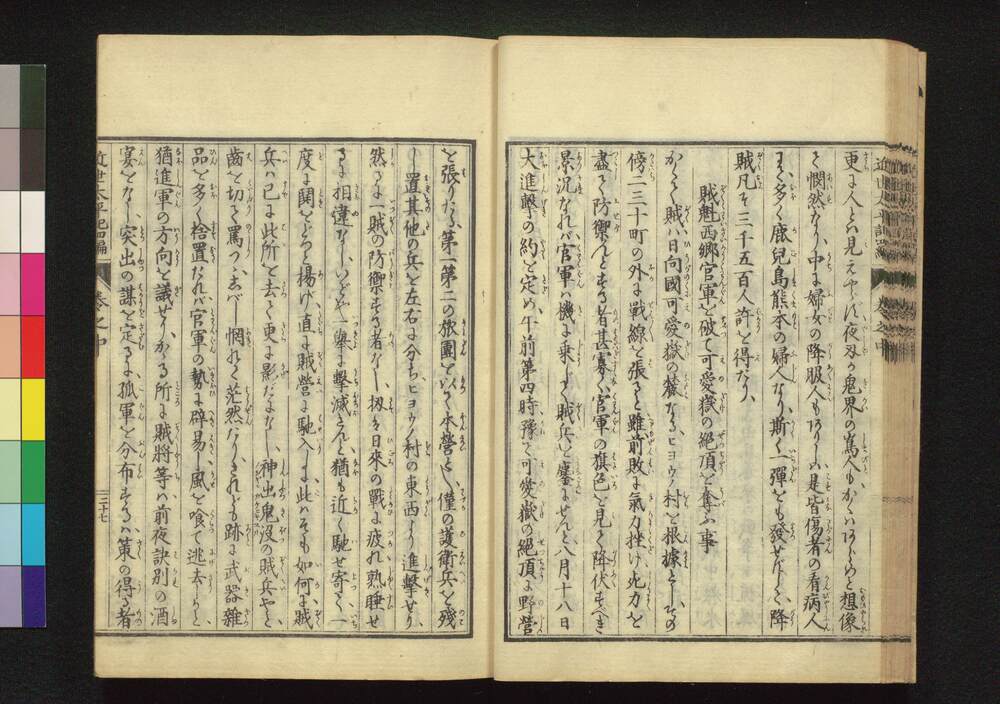 更に人とハ見えやらバ夜刄か鬼界の嶌人もかくハあらめと想像
さ憫然なり、中に婦女の降服人もありしハ是皆傷者の看病人
にて、多くハ鹿兒島熊本の婦人なり、斯く一彈をも發せずして、降
賊凡そ三千五百人許を得たり、
賊魁西郷官軍を破て可愛嶽の絶頂を奪ふ事
かくて賊ハ日向國可愛嶽の麓なるヒヨウノ村を根據とし、その
傍二三十町の外に戰線を張ると雖前敗に氣力挫け死力を
盡て防禦んとする者甚寡く官軍の旗色を見て降伏すべき
景况なれバ官軍ハ機に乗じて賊兵を鏖にせんと八月十八日
大進擊の約を定め、午前第四時豫て可愛嶽の絶頂に野營
を張りたる第一第二の旅團を以て本營とし僅の護衛兵を殘
し置其他の兵を左右に分ちヒヨウノ村の東西より進擊せり、
然るに一賊の防禦する者なし、扨ハ日來の戰に疲れ熟睡せ
しに相違なし、いざ一舉に擊滅さんと猶も近く馳せ寄て、一
度に鬨をどつと揚げ直に賊營に馳入しに此ハそも如何に賊
兵ハ已に此所を去て更に影だになし、神出鬼沒の賊兵やと
齒を切て罵つゝ惘れて茫然たり、されども跡に武器雜
品を多く捨置たれバ官軍の勢に辟易し風を喰て逃去しと
猶進軍の方向を議せり、かゝる所に賊將等ハ前夜訣別の酒
宴をなし、突出の謀を定るに孤軍を分布するハ策の得る者
近世太平記四編
卷之中
二十七